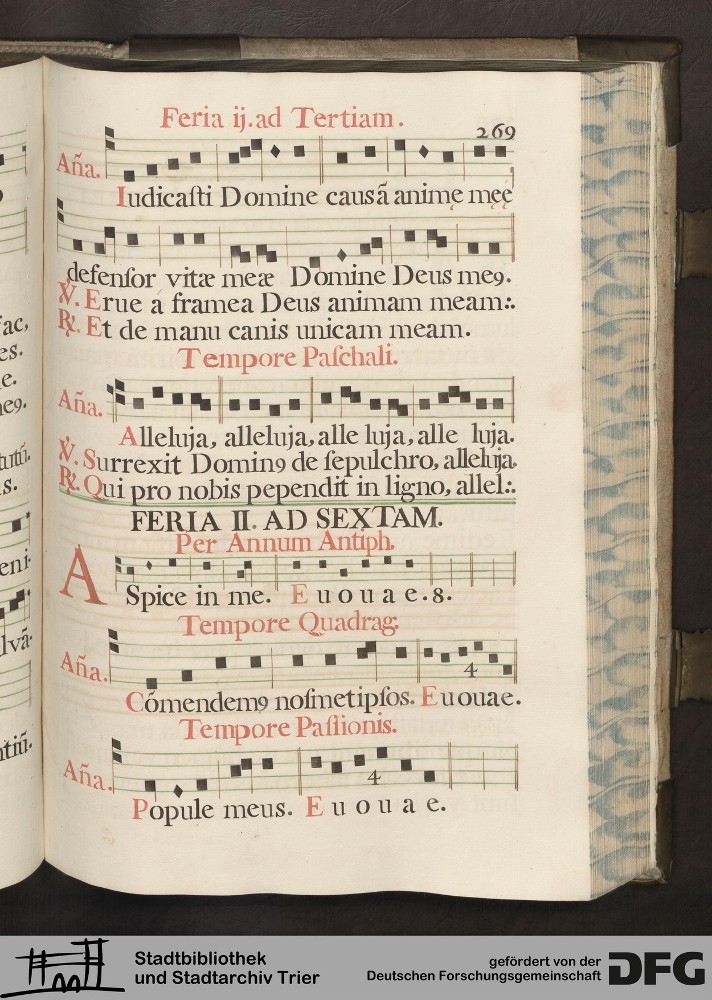 Feria ij. ad Tertiam.
269
Aña.
Iudicaſti Domine causã animę męę
defenſor vitæ meæ Domine Deus me9.
℣. Erue a framea Deus animam meam:.
℟. Et de manu canis unicam meam.
Tempore Paſchali.
Aña.
Alleluja, alleluja, alle luja, alle luja.
℣. Surrexit Domin9 de ſepulchro, alleluja.
℟. Qui pro nobis pependit in ligno, allel:.
FERIA II. AD SEXTAM.
Per Annum Antiph.
ASpice in me. E u o u a e. 8.
Tempore Quadrag:
4
Aña.
Cõmendem9 noſmetipſos. Euouae.
Tempore Paſſionis.
4
Aña.
Popule meus. E u o u a e.
ac,
es.
e.
e9.
tutũ.
s.
eni-
lvã-
ntiũ.
Stadtbibliothek
und Stadtarchiv Trier
gefördert von der
Deutschen Forschungsgemeinschaft
DFG